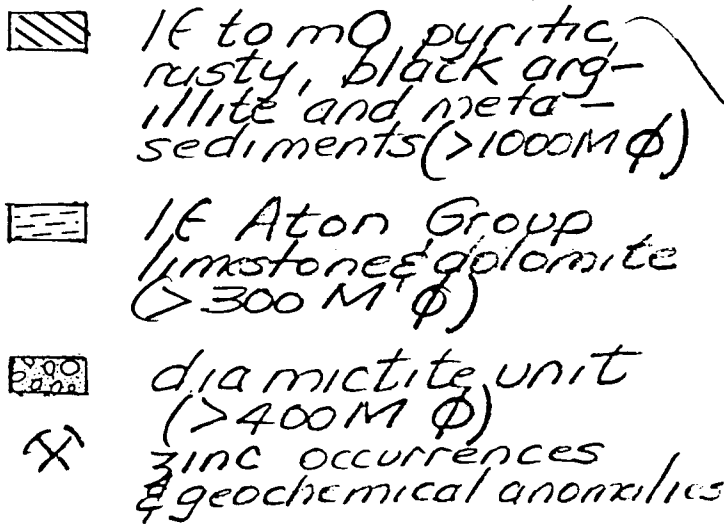 lЄ to mO pyritic,
rusty, black arg-
illite and meta-
sediments(>1000M ϕ)
lЄ Aton Group
limestone & dolomite
(>300 M ϕ)
diamictite unit
(>400M ϕ)
zinc occurrences
& geochemical anomalies